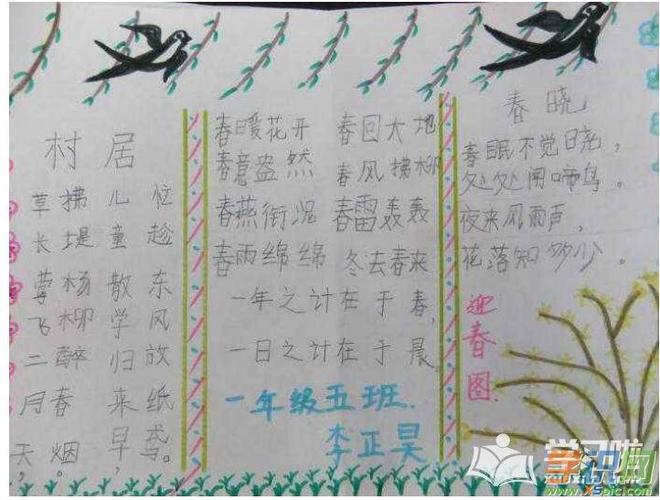 村居
草长莺飞二月天，
拂堤杨柳醉春烟。
儿童散学归来早，
忙趁东风放纸鸢。
春暖花开 春回大地
春意盎然 春风拂柳
春燕衔泥 春雷轰轰
春雨绵绵 冬去春来
一年之计在于春，
一日之计在于晨
一年级五班.
李正昊
春晓
春眠不觉晓，
处处闻啼鸟。
夜来风雨声，
花落知多少。
迎春图.